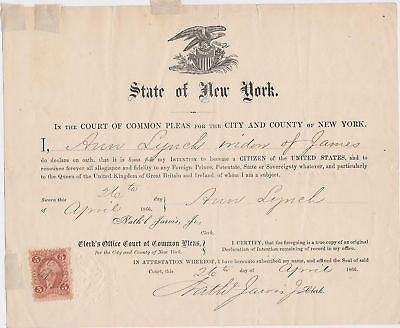 State of New York.
IN THE COURT OF COMMON PLEAS FOR THE CITY AND COUNTY OF NEW YORK.
I, Ann Lynch widow of James
do declare on oath, that it is bona fide my INTENTION to become a CITIZEN of the UNITED STATES, and to
renounce forever all allegiance and fidelity to any Foreign Prince, Potentate, State or Sovereignty whatever, and particularly
to the Queen of the United Kingdom of Great Britain and Ireland, of whom I am a subject.
Sworn this 26th
day of April 1866. Ann Lynch
Nathl Jarvis, Jr.
Clerk's Office Court of Common Pleas,
for the City and County of New York.
I CERTIFY, that the foregoing is a true copy of an original
Declaration of Intention remaining of record in my office.
IN ATTESTATION WHEREOF, I have hereunto subscribed my name, and affixed the Seal of said
Court, this 26th day of April 1866.
Nathl Jarvis Jr Clerk.
5 5